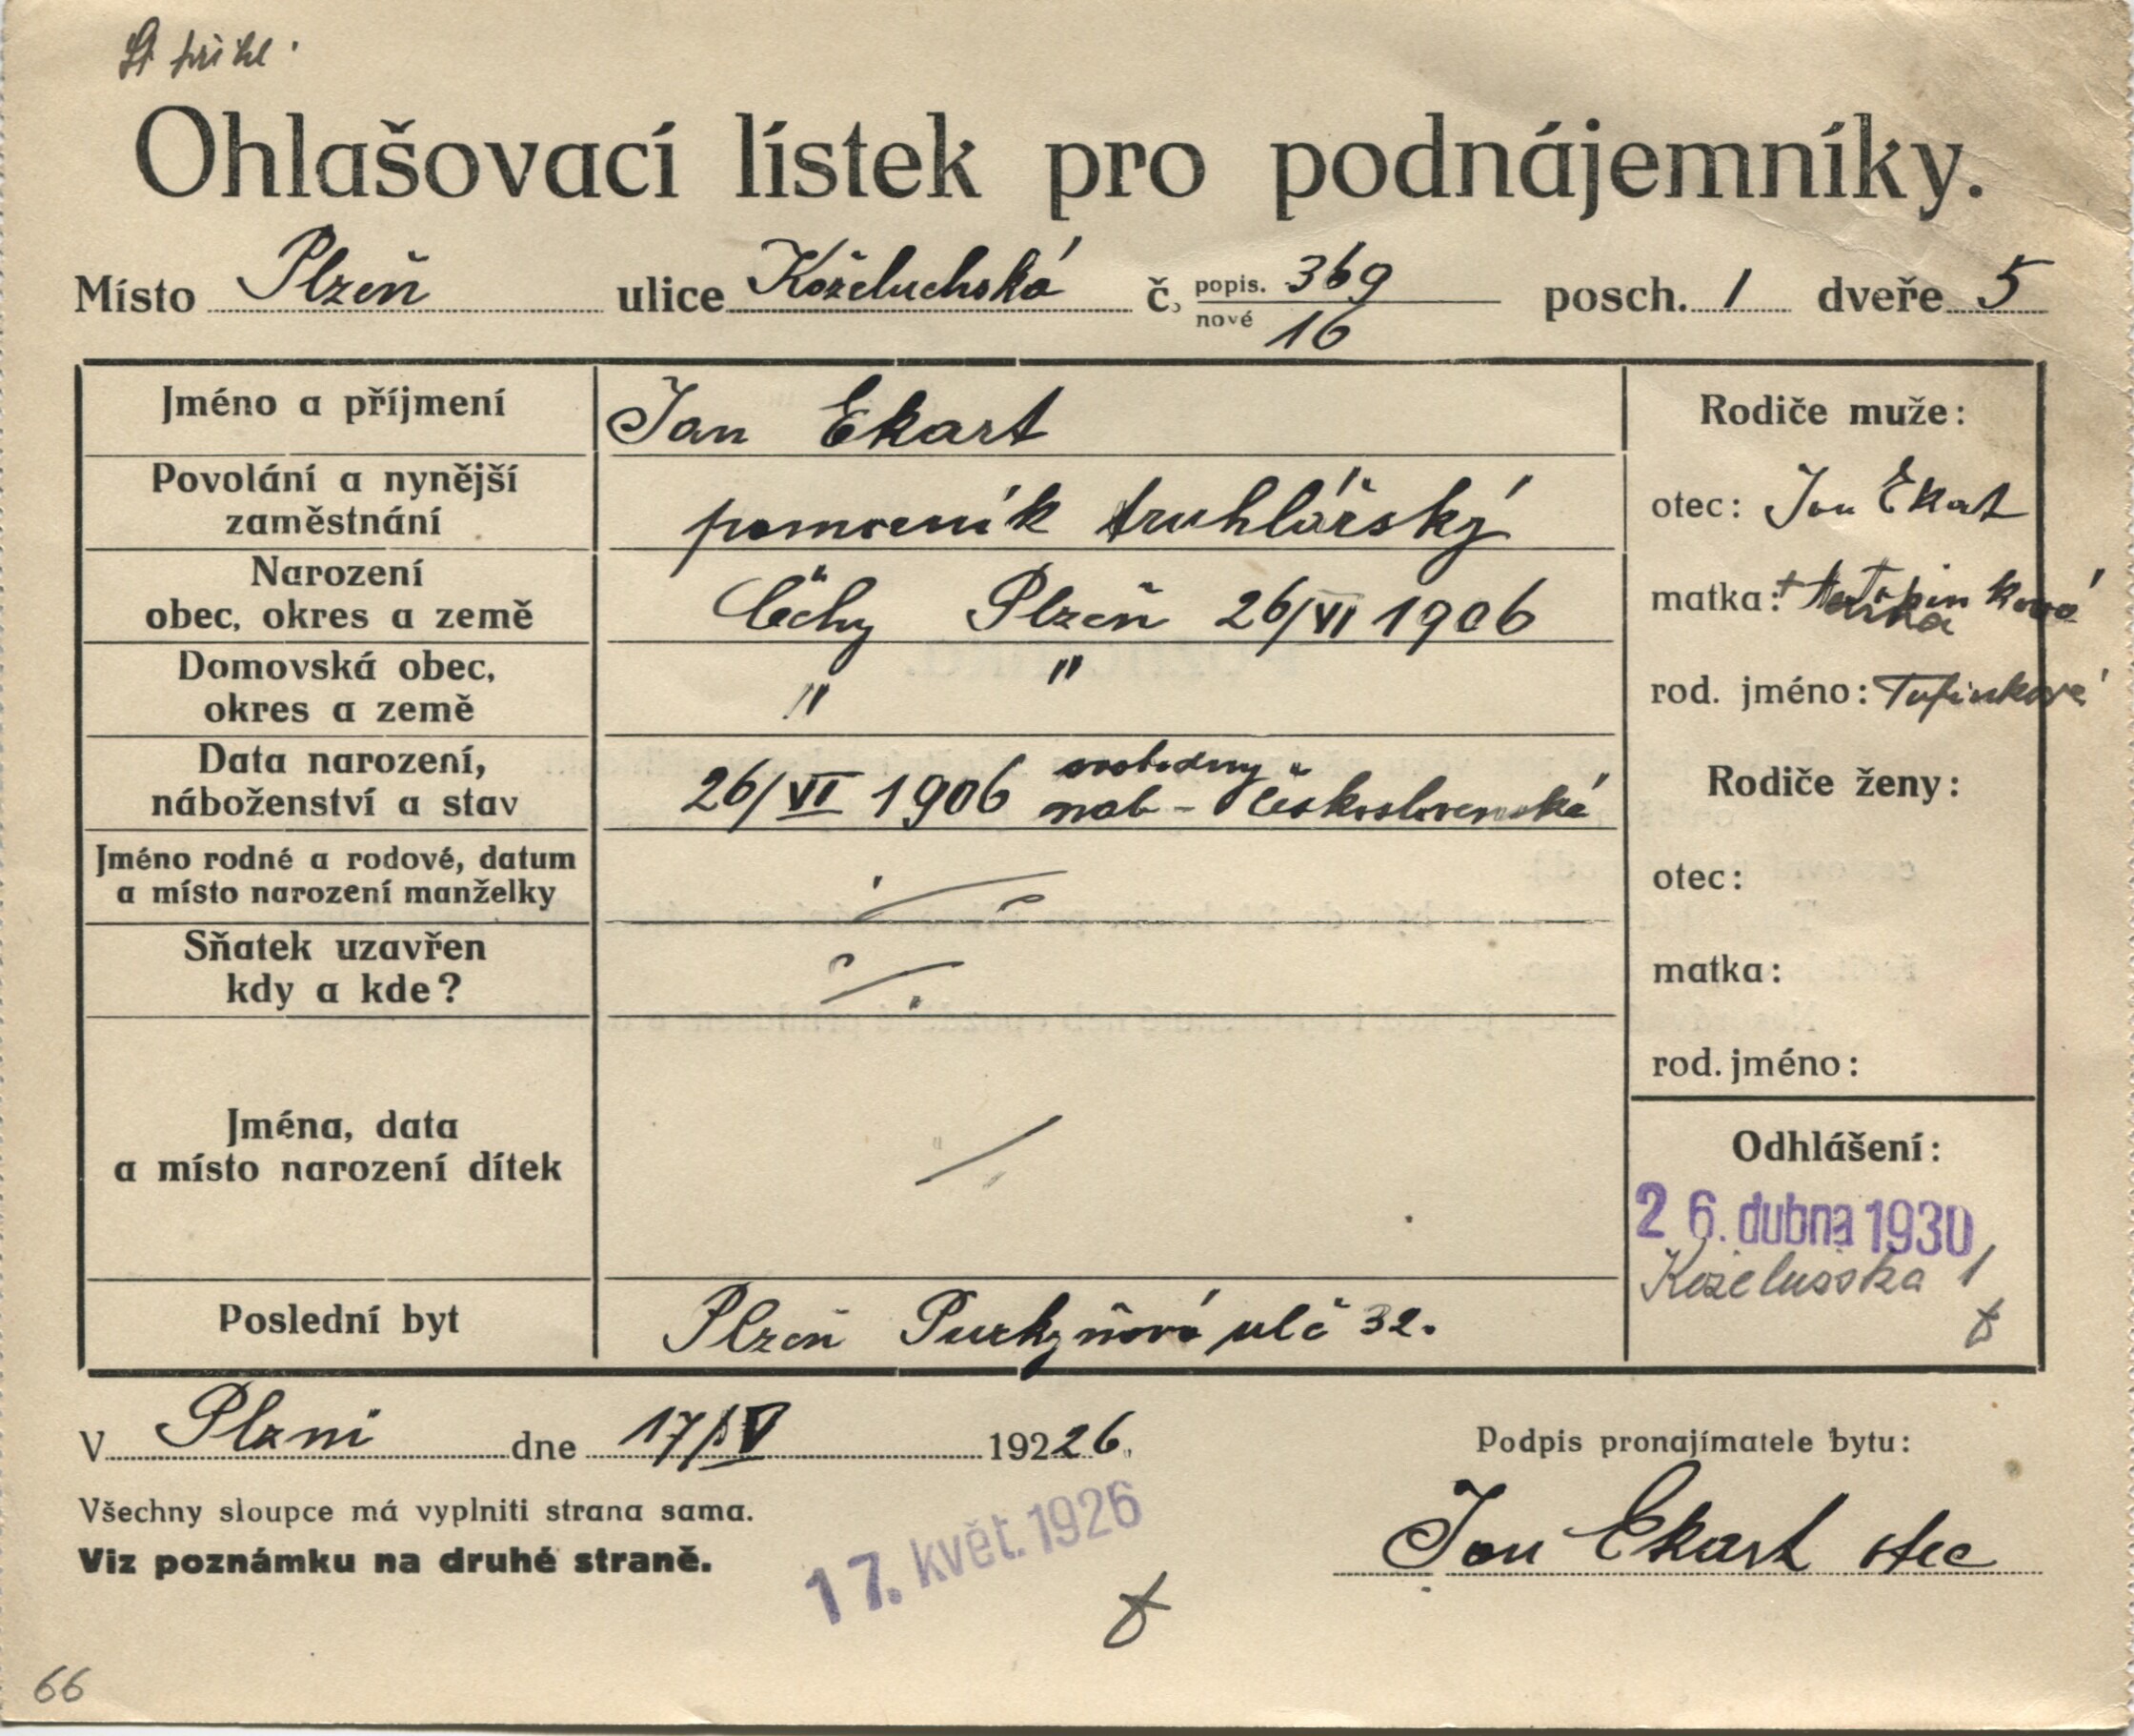 Ohlašovací lístek pro podnájemníky.
Místo Plzeň ulice Koželuchská č. popis. 369 nové 16 posch. 1 dveře 5
Jméno a příjmení Jan Ekart
Rodiče muže:
Povolání a nynější zaměstnání pomocník truhlářský
otec: Jan Ekart
Narození obec, okres a země Čechy Plzeň 26/VI 1906
matka:
Domovská obec, okres a země " "
rod. jméno: Tupinková
Data narození, náboženství a stav 26/VI 1906 svobodný náb - československá
Rodiče ženy:
Jméno rodné a rodové, datum a místo narození manželky
otec:
Sňatek uzavřen kdy a kde?
matka:
rod. jméno:
Jména, data a místo narození dítek
Odhlášení:
26. dubna 1930
Koželusska 1
Poslední byt Plzeň Purkyňová ulč 32.
V Plzni dne 17/V 19226.
Podpis pronajímatele bytu:
Všechny sloupce má vyplniti strana sama.
Viz poznámku na druhé straně.
17. květ. 1926
Jan Ekart otec
66